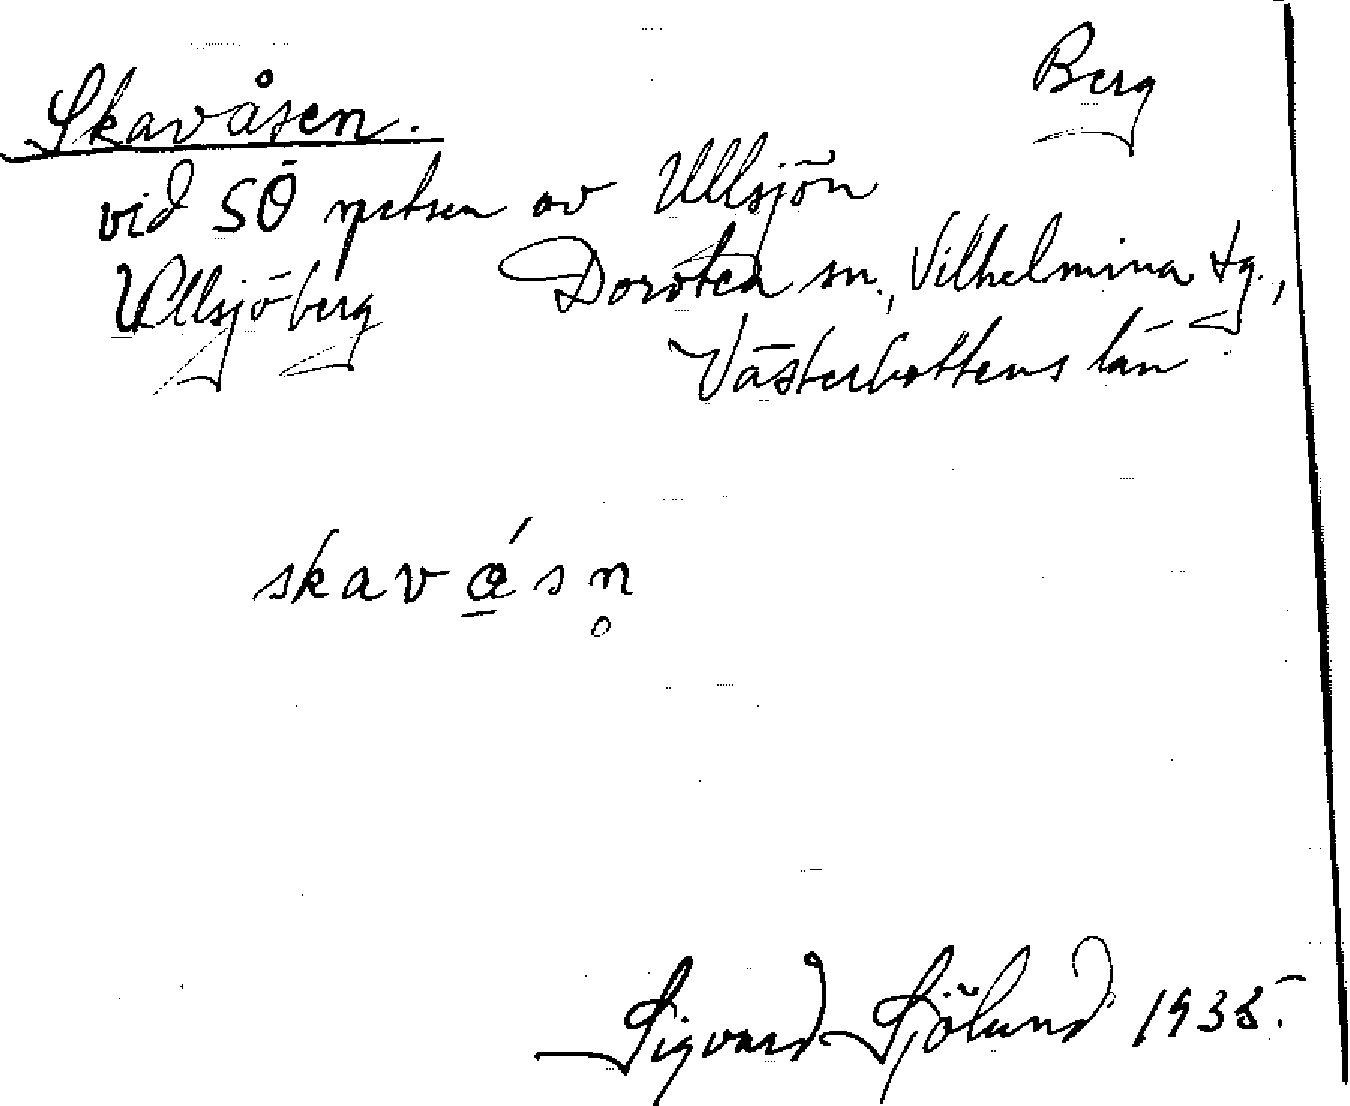 Berg
Skavåsen.
vid SÖ spetsen av Ullsjön
Ullsjöberg
Dorotea sn., Vilhelmina tg.,
Västerbottens län
skavǻsn̥
Sigvard Sjölund 1935.